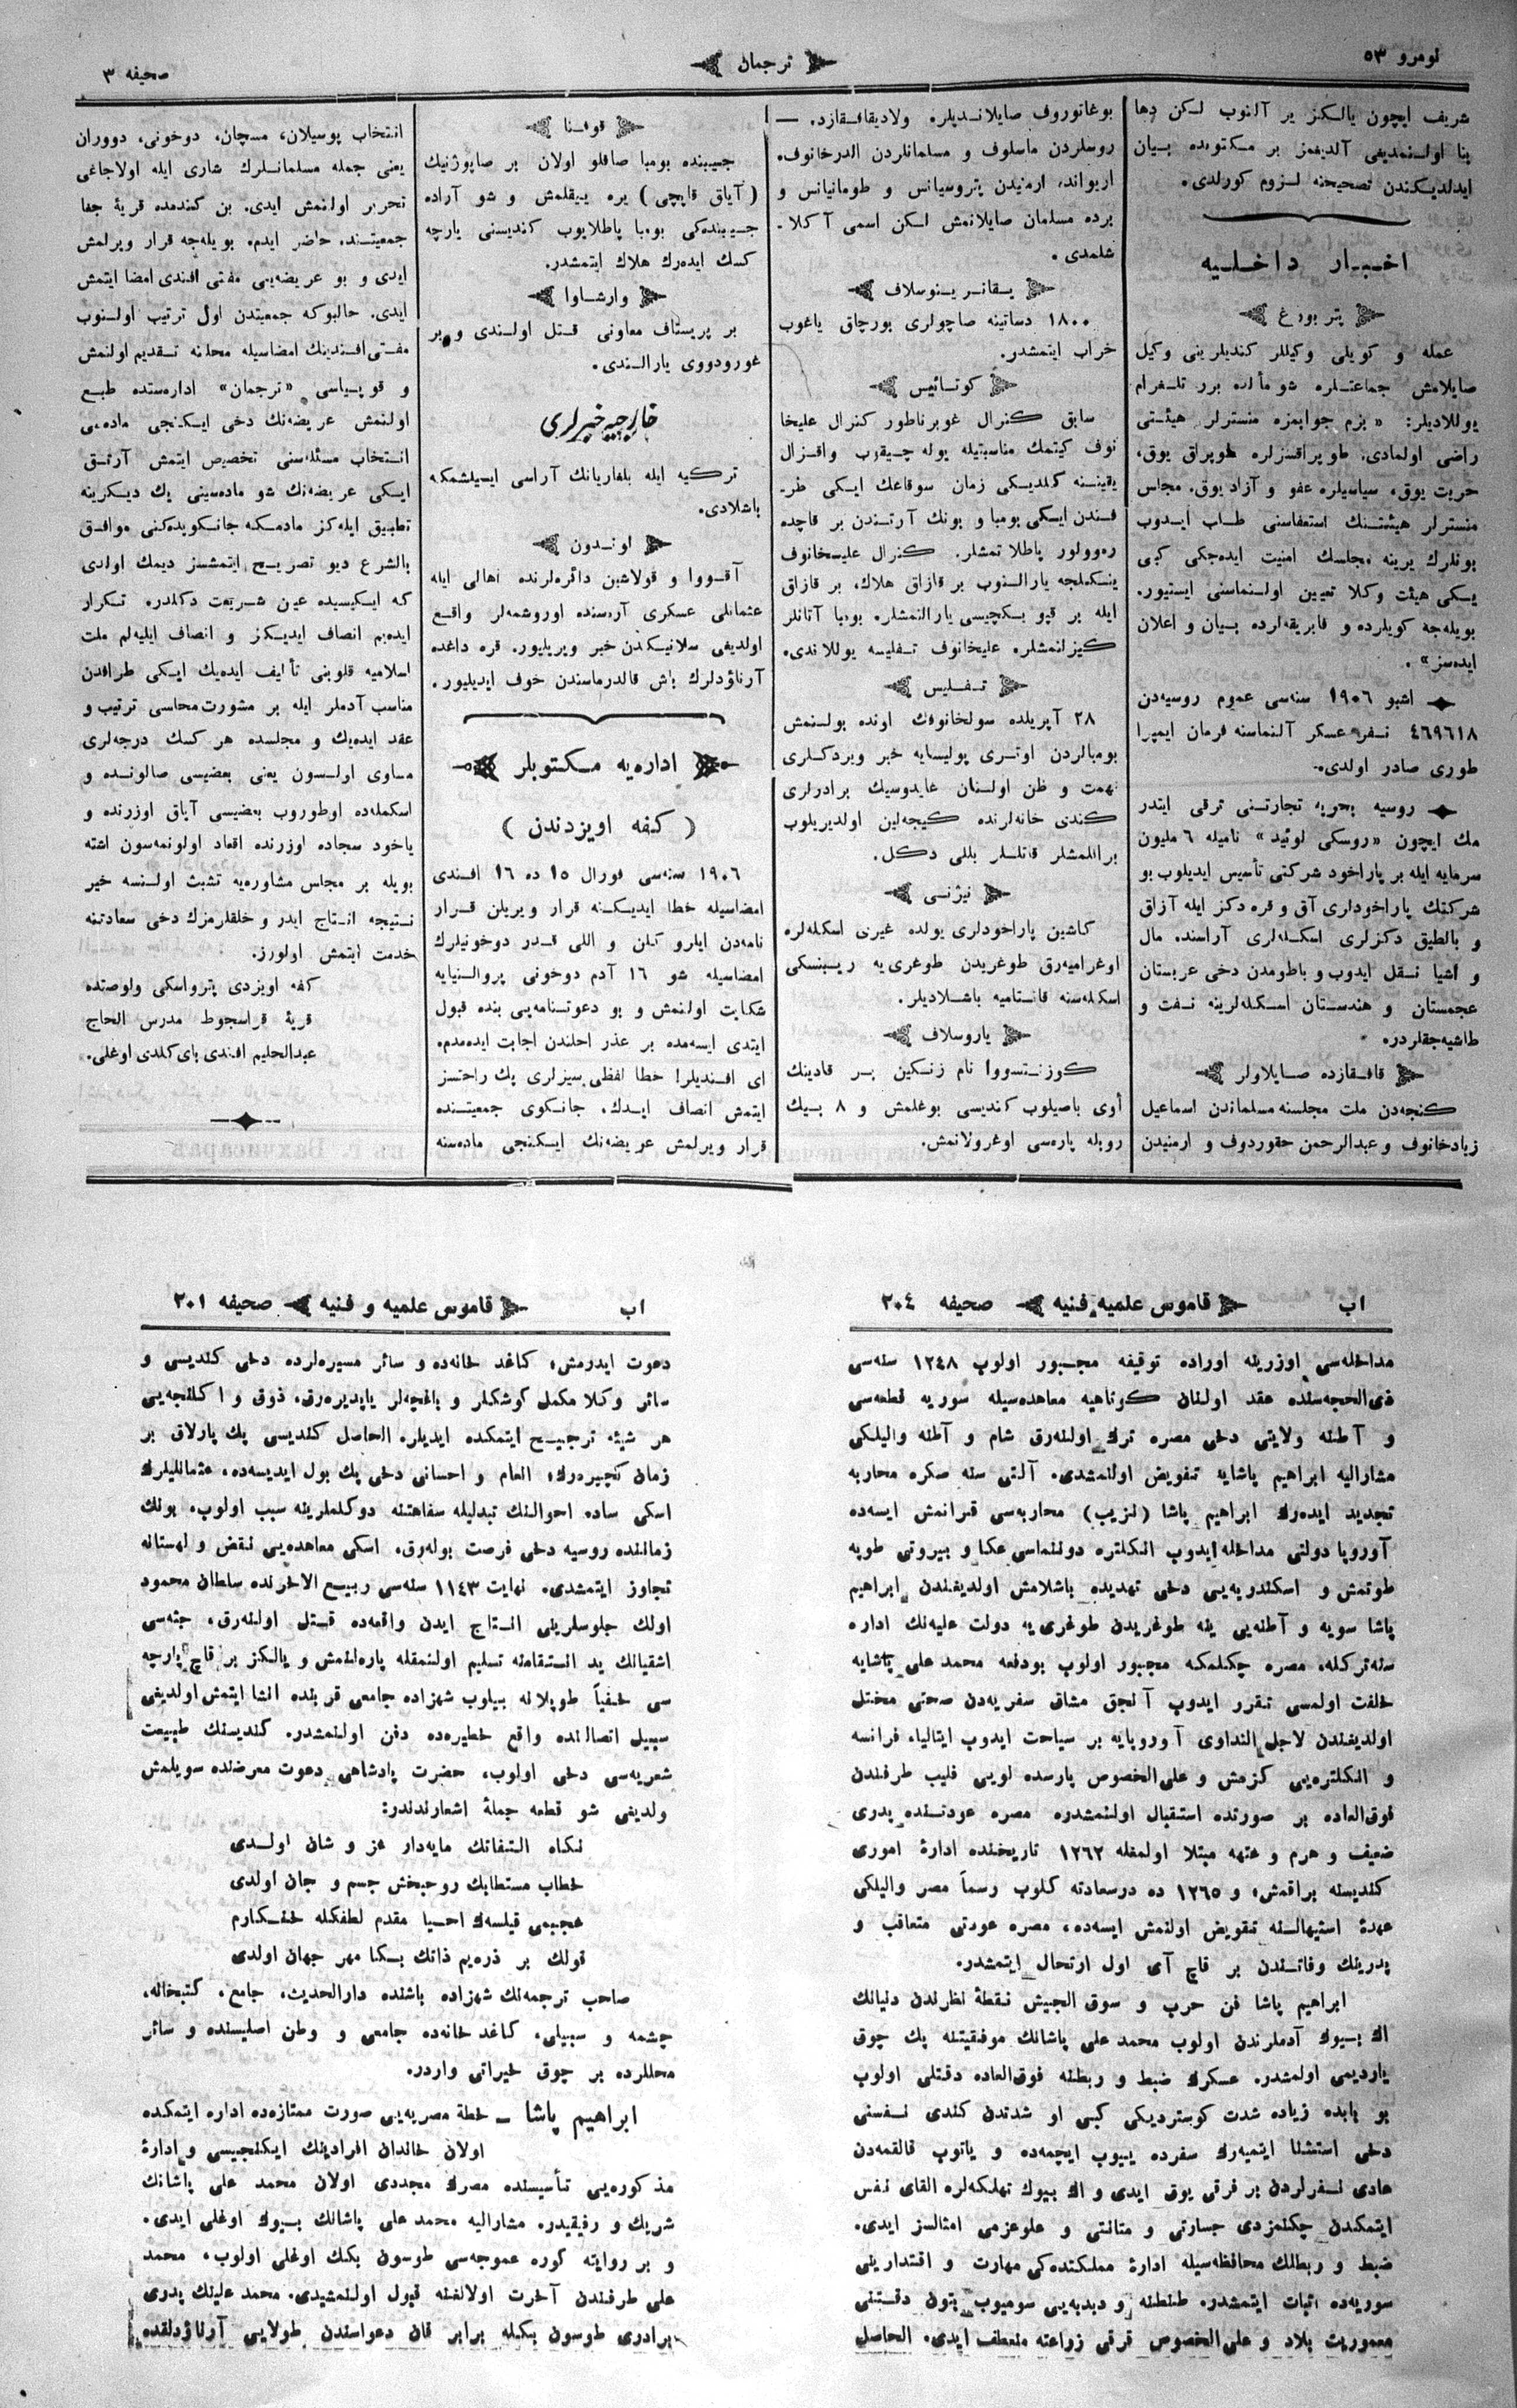 نومرو ٥٣
ترجمان
صحیفه ٣
شریف ایچون یالـکز یر آلنوب لـکن دها
بنا اولـنمدیغی آلدیغمز بر مـکتوبده بـیان
ایدلدیـکندن تصحیحنه لـزوم کورلدی.
اخـبـار داخـلـیه
پتر بورغ
عمله و کویلی وکیللر کندیلرینی وکیل
صایلامش جماعتـلره شو مألده برر تلـغرام
یوللادیلر: «بزم جوابمزه منسترلر هیئـتی
راضی اولمادی. طوپراقسزلره طوپراق یوق،
حریت یوق، سیاسیلره عفو و آزاد یوق. مجلس
منسترلر هیئتـنك استعفاسنی طـلب ایـدوب
بونلرك یرینه مجلسك امنیت ایده‌جکی کبی
یـکی هیئت وکلا تعیین اولـنماسنی ایستیور.
بویله‌جه کویلرده و فابریقه‌لرده بـیان و اعلان
ایده‌سز» .
اشبو ١٩٠٦ سنه‌سی عموم روسیه‌دن
٤٦٩٦١٨ نـفر عسکر آلنماسنه فرمان ایمپرا
طوری صادر اولدی.
روسیه بحریه تجارتـنی ترقی ایتدر
مك ایچون «روسکی لوئید» نامیله ٦ ملیون
سرمایه ایله بر پاراخود شرکتی تأسیس ایدیلوب بو
شرکتك پاراخودلری آق و قره دکز ایله آزاق
و بالطیق دکزلری اسکـله‌لری آراسنده مال
و اشیا نـقل ایدوب و باطومدن دخی عربستان
عجمستان و هندستان اسـکله‌لرینه نـفت و
طاشیه‌جقلردر.
قافـقازده صـایلاولر
کـنجه‌دن ملت مجلسنه مسلماندن اسماعیل
زیادخانوف و عبدالرحمن حقوردوف و ارمنیدن
بوغاتوروف صایلانـدیلر. ولادیقافـقازد. —
روسلردن ماسلوف و مسلمانلردن الدرخانوف.
اریواند، ارمنیدن پتروسیانس و طومانیانس و
برده مسلمان صایلانمش لـکن اسمی آکلا.
شلمدی .
یـقانـر یـنوسلاف
١٨٠٠ دساتینه صاچولری بورچاق یاغوب
خراب ایتمشدر.
کوتـائیس
سابق کـنرال غوبرناطور کنرال علیخا
نوف کیتمك مناسبتیله یوله چـیقوب واقـزال
یقینـنه کلدیـکی زمان سوقاغك ایـکی طرـ
فـندن ایـکی بومبا و بونك آرتـندن بر قاچده
ره‌وولور پاطلاتمشلر. کـنرال علیخانوف
ینـکلجه یارالـنوب بر قازاق هلاك، بر قازاق
ایله بر قپو بـکچیسی یارالنمشلر. بومبا آتانلر
کـیزلنمشلر. علیخانوف تـفلیسه یوللاندی.
تـفـلیس
٢٨ آپریلده سولخانوفك اونده بولـنمش
بومبالردن اوتـری پولیسایه خبر ویردکـلری
تهمت و ظن اولـنان غایدوسیك برادرلری
کـندی خانه‌لرنده کـیجه‌لین اولدیریلوب
براقلمشلر. قاتلـلر بللی دکـل.
نیژنـی
کاشین پاراخودلری یولده غیری اسکله‌لره
اوغرامیه‌رق طوغریدن طوغری‌یه ریـبـنسکی
اسکله‌سنه قاتنامیه باشـلادیلر.
یاروسلاف
کوزنـتسووا نام زنـکین بـر قادینك
أوی باصیلوب کندیسی بوغلمش و ٨ بـیك
روبله پاره‌سی اوغرولانمش.
قوفـنا
جـیبنده بومبا صاقلو اولان بر صاپوژنیك
(آیاق قابچی) یره ییقلمش و شو آراده
جـیبنده‌کی بومبا پاطلایوب کندیسنی پارچه
کسك ایده‌رك هلاك ایتمشدر.
وارشـاوا
بر پریستاف معاونی قـتل اولـندی و بر
غورودووی یارالـندی.
خارجیه خبرلری
ترکـیه ایله بلغاریانك آراسی ایـیلشمکه
باشلادی.
لونـدون
آقـووا و قولاشین دائره‌لرنده اهالی ایله
عثمانلی عسکری آره‌سنده اوروشمه‌لر واقـع
اولدیغی سلانیـکدن خبر ویریلیور. قره داغده
آرناؤدلرك باش قالدرماسندن خوف ایدیلیور.
اداره‌یه مـکتوبلر
(کـفه اویزدندن)
١٩٠٦ سنه‌سی فورال ١٥ ده ١٦ افـندی
امضاسیله خطا ایدیـکـنه قرار ویریلن قـرار
نامه‌دن ایلرو کلن و اللی قـدر دوخونیلرك
امضاسیله شو ١٦ آدم دوخونی پروالـنیایه
شکایت اولنمش و بو دعوتـنامه‌یی بنده قبول
ایتدی ایسه‌مده بر عذر احلندن اجابت ایده‌مدم.
ای افـندیلر! خطا لفظی سیزلری پك راحتسز
ایتمش انصاف ایـدك. جانـکوی جمعیتـنده
قرار ویرلمش عریضه‌نك ایـکـنجی ماده‌سنه
انتخاب پوسیلان، مسچان، دوخونی، دووران
یعنی جمله مسلمانـلرك شاری ایله اولاجاغی
تحریر اولـنمش ایدی. بن کندمده قریهٔ جفا
جمعیتـنده حاضر ایدم. بویله‌جه قرار ویرلمش
ایدی و بو عریضه‌یی مفتی افندی امضا ایتمش
ایدی. حالبوکه جمعیتدن اول ترتیب اولـنوب
مفـتی افـندینك امضاسیله محلنه تـقدیم اولنمش
و قوپیاسی «ترجمان» اداره‌ستده طبـع
اولنمش عریضه‌نك دخی ایـکـنجی ماده‌یی
انـتخاب مسئله‌سنی تخصیص ایتمش آرتـق
ایـکی عریضه‌نك شو ماده‌سینی یك دیـکرینه
تطبیق ایله‌کز مادمـکه جانـکویده‌کنی موافـق
بالشرع دیو تصریـح ایتمشسز دیمك اولدی
که ایـکیسیده عین شریعت دکلدر. تـکرار
ایده‌یم انصاف ایدیـکز و انصاف ایلیه‌لم ملت
اسلامیه قلوبنی تألیف ایده‌یك ایـکی طرافدن
مناسب آدملر ایله بر مشورت محلسی ترتیب و
عقد ایده‌یك و مجلسده هر کسك درجه‌لری
مساوی اولـسون یعنی بعضیسی صالونـده و
اسکمله‌ده اوطوروب بعضیسی آیاق اوزرنده و
یاخود سجاده اوزرنده اقعاد اولونمه‌سون اشته
بویله بر مجلس مشاوره‌یه تشبث اولـنسه خیر
نـتیجه انـتاج ایدر و خلقلرمزك دخی سعادتـنه
خدمت ایتمش اولورز.
کفه اویزدی پترواسکی ولوصتده
قریهٔ قراسجوط مدرس الحاج
عبدالحلیم افندی بای کلدی اوغلی.
اب
قاموس علمیه و فـنیه
صحیفه ٢٠٤
مداخله‌سی اوزرینه اوراده توقیفه مجـبور اولوب ١٢٤٨ سنه‌سی
ذی‌الحجه‌سنده عقد اولـنان کـوتاهیه معاهده‌سیله سوریه قطعه‌سی
و آطنه ولایتی دخی مصره ترك اولنه‌رق شام و آطنه والیلـکی
مشارالیه ابراهیم پاشایه تـفویض اولنمشدی. آلـتی سنه صکره محاربه
تجدید ایده‌رك ابراهیم پاشا (نزیب) محاربه‌سی قـزانمش ایسه‌ده
آوروپا دولتی مداخله ایدوب انـکلتره دونـنماسی عکا و بیروتی طوپه
طوتمش و اسکندریه‌یی دخی تهدیده باشلامش اولدیغـندن ابراهیم
پاشا سوریه و آطنه‌یی ینه طوغریدن طوغری‌یه دولت علیه‌نك اداره
سنه ترکـله، مصره چکـلمکه مجبور اولوب بودفعه محمد علی پاشایه
خلفت اولمسی تـقرر ایدوب آنجق مشاق سفریه‌دن صحتی مختل
اولدیغـندن لاجل التداوی آوروپایه بر سیاحت ایدوب ایتالیا، فرانسه
و انـکلتره‌یی کزمش و علی‌الخصوص پارسده لویی فلیب طرفـندن
فوق‌العاده بر صورتده استـقبال اولنمشدر. مصره عودتـنده پدری
ضعیف و هرم و عتهه مبتلا اولمغله ١٢٦٢ تاریخـنده ادارهٔ اموری
کندیسنه براقمش، و ١٢٦٥ ده درسعادته کلوب رسماً مصر والیلکی
عهدهٔ استیهالـنه تـفویض اولنمش ایسه‌ده، مصره عودتی متعاقب و
پدرینك وفاتـندن بر قاچ آی اول ارتحال ایتمشدر.
ابراهیم پاشا فن حرب و سوق الجیش نـقطهٔ نظرندن دنیانك
اك بـیوك آدملرندن اولوب محمد علی پاشانك موفقیتـنه پك چوق
یاردیمی اولمشدر. عسکرك ضبط و ربطنه فوق‌العاده دقـتلی اولوب
بو بابده زیاده شدت کوستردیکی کبی او شدتدن کندی نـفسنی
دخی استثنا ایتمیه‌رك سفرده ییوب ایچمه‌ده و یاتوب قالقمه‌دن
عادی نـفرلردن بر فرقی یوق ایدی و اك بیوك تهلـکه‌لره القای نفس
ایتمکدن چکنمزدی جسارتی و متانتی و علوعزمی امثالسز ایدی.
ضبط و ربطلك محافظه‌سیله ادارهٔ مملکتده‌کی مهارت و اقتدارینی
سوریه‌ده اثبات ایتمشدر. طنطنه و دبدبه‌یی سومیوب بتون دقـتـنی
معموریت بلاد و علی‌الخصوص ترقی زراعته منعطف ایدی. الحاصل
اب
قاموس علمیه و فـنیه
صحیفه ٢٠١
دعوت ایدرمش، کاغد خانه‌ده و سائر مسیره‌لرده دخی کندیسی و
سائر وکلا مکمل کوشکلر و باغچه‌لر یاپدیره‌رق، ذوق و اکلنجه‌یی
هر شیئه ترجیـح ایتمکده ایدیلر. الحاصل کندیسی پك پارلاق بر
زمان کچیره‌رك، انعام و احسانی دخی پك بول ایدیسه‌ده، عثمانلیلرك
اسکی ساده احوالـنك تبدلیله سفاهتـنه دوکلملرینه سبب اولوب، بونك
زماننده روسیه دخی فرصت بوله‌رق، اسکی معاهده‌یی نـقض و لهستانه
تجاوز ایتمشدی. نهایت ١١٤٣ سنه‌سی ربیـع الاخرنده سلطان محمود
اولك جلوسلرینی انـتاج ایدن واقعه‌ده قـتل اولنه‌رق، جثه‌سی
اشقیانك ید انـتـقامنه تسلیم اولـنمقله پاره‌لنمش و یالـکز بر قاچ پارچه
سی خفیاً طوپلانه بیلوب شهزاده جامعی قربنده انشا ایتمش اولدیغی
سبیل اتصالـنده واقع خطیره‌ده دفن اولنمشدر. کندیسنك طبیعت
شعریه‌سی دخی اولوب، حضرت پادشاهی دعوت معرضنده سویلمش
ولدیغی شو قطعه جملهٔ اشعارندندر:
نـکاه الـتـفاتك مایه‌دار عز و شان اولـدی
خطاب مستطابك روحبخش جسم و جان اولدی
عجبمی قیلسه‌ك احـیا مقدم لطفکله خنـکارم
قولك بر ذره‌یم ذاتك بـکا مهر جهان اولدی
صاحب ترجمه‌نك شهزاده باشنده دارالحدیث، جامع، کتبخانه،
چشمه و سبیلی، کاغد خانه‌ده جامعی و وطن اصلیسنده و سائر
محللرده بر چوق خیراتی واردر.
ابراهیم پاشا – خطهٔ مصریه‌یی صورت ممتازه‌ده اداره ایتمکده
اولان خاندان افرادینك ایـکنجیسی و ادارهٔ
مذکوره‌یی تأسیسنده مصرك مجددی اولان محمد علی پاشانك
شریك و رفیقیدر. مشارالیه محمد علی پاشانك بـیوك اوغلی ایدی.
و بر روایته کوره عموجه‌سی طوسون بكك اوغلی اولوب، محمد
علی طرفـندن آخرت اولادلغنه قبول اولـنمشیدی. محمد علینك پدری
برادری طوسون بكله برابر قان دعواسندن طولایی آرناؤدلقده